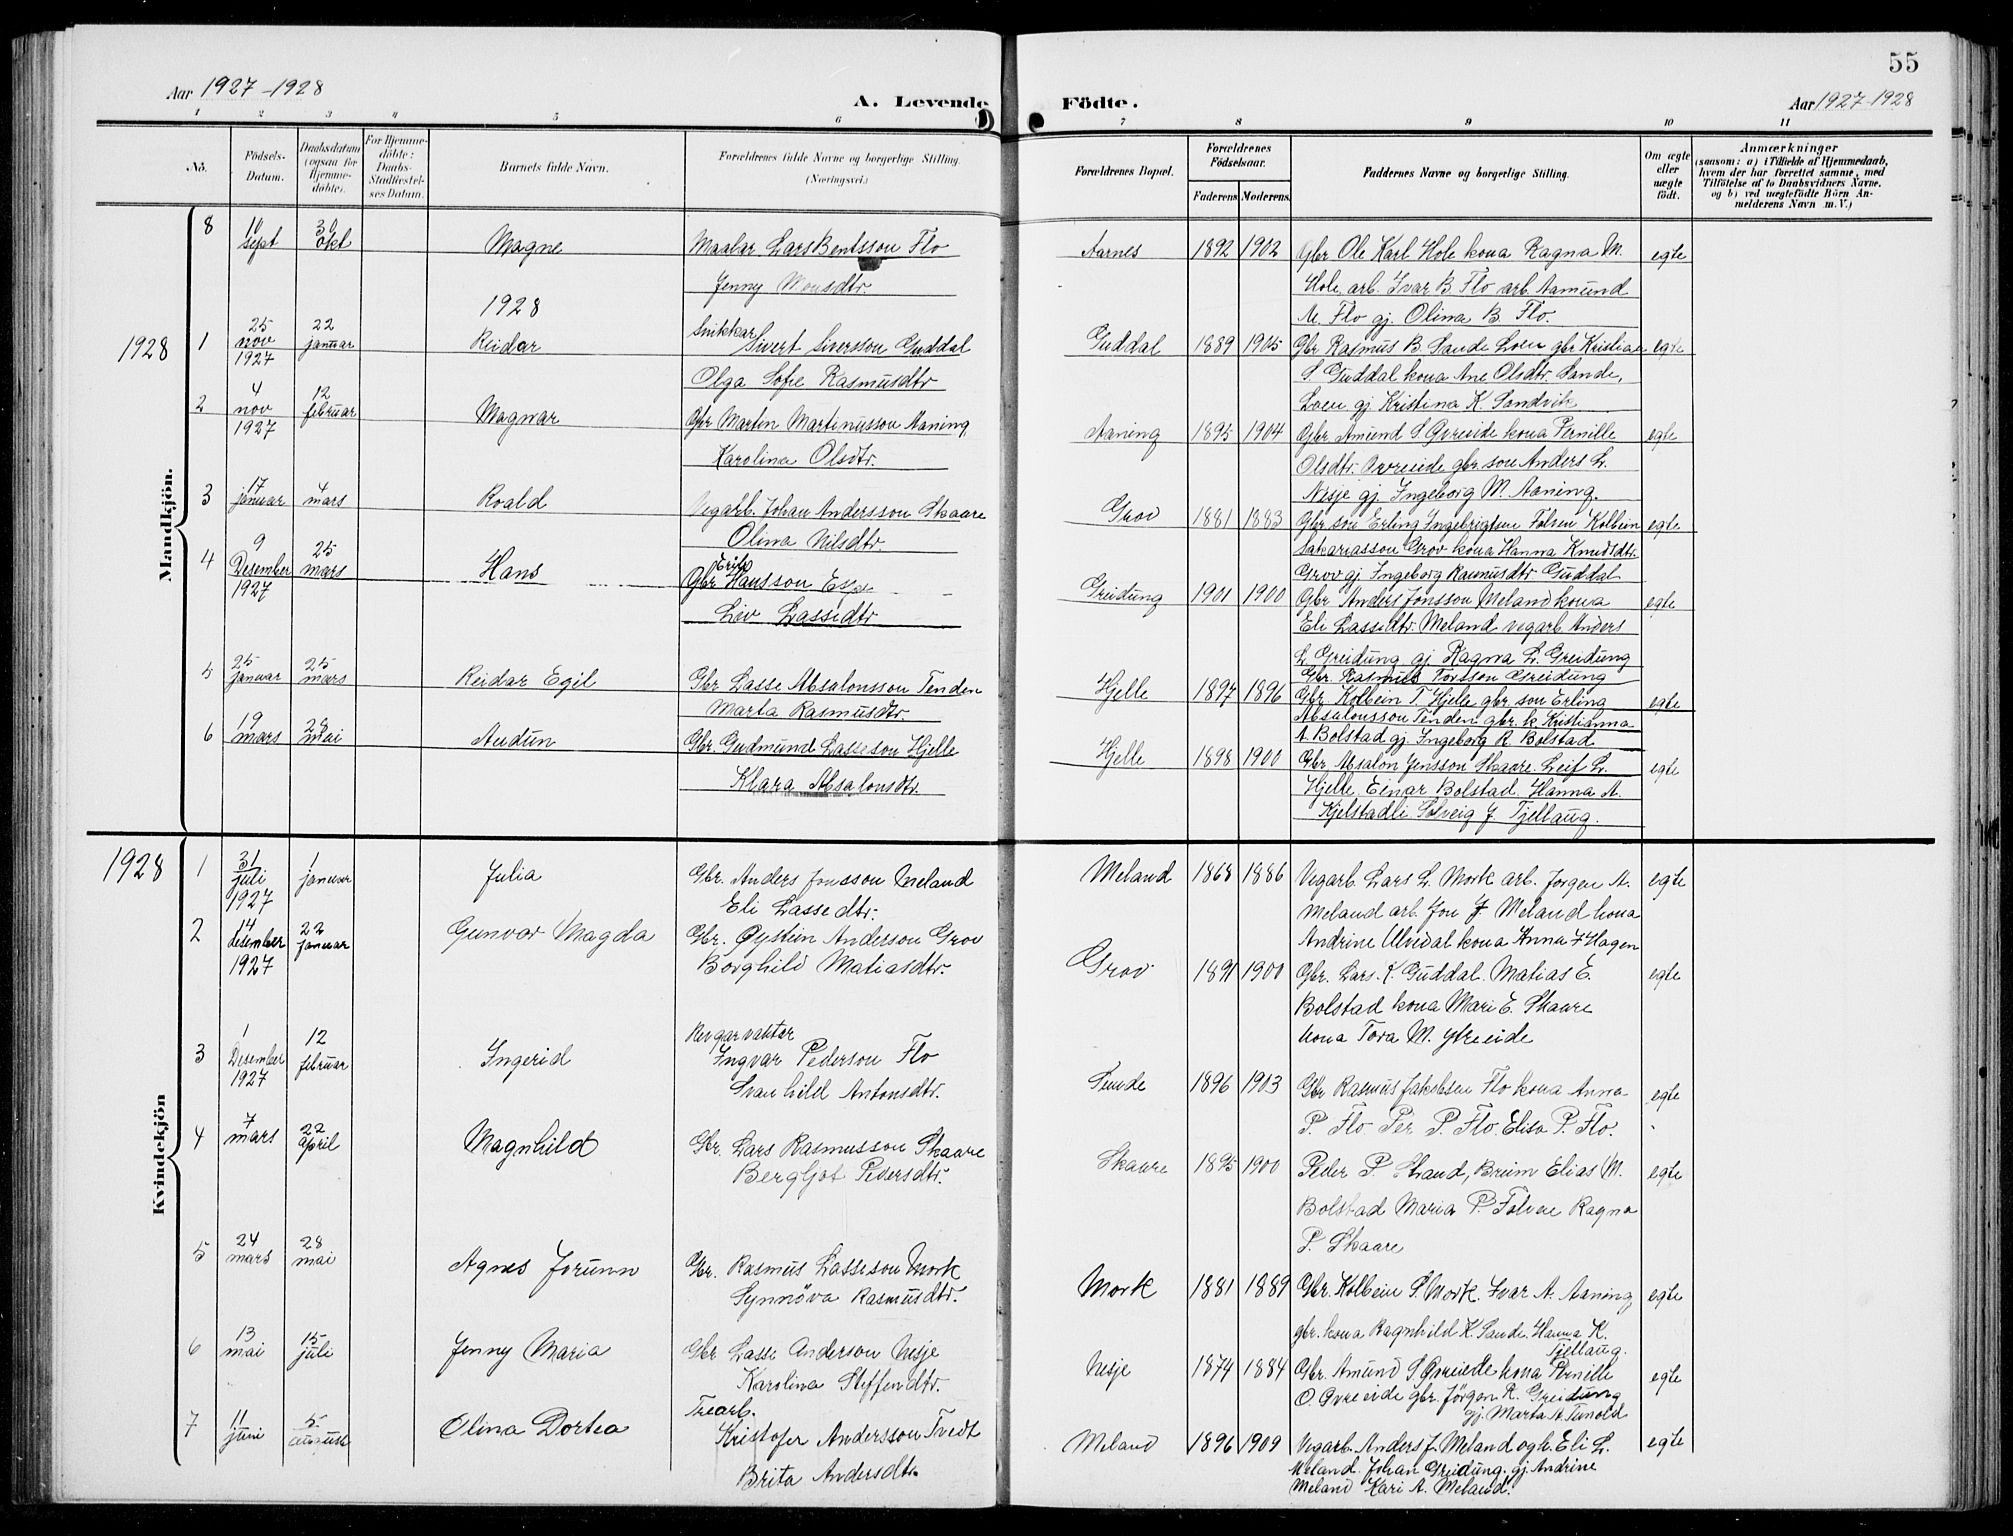 Aar 1927-1928
A. Levende
Födte.
Aar 1927-1928
55
1 2 3 4 5 6 7 8 9 10 11
No.
Födsels-Datum.
Daabsdatum (ogsaa for Hjemmedöbte).
For Hjemmedöbte: Daabs-Stadfæstelses Datum.
Barnets fulde Navn.
Forældrenes fulde Navne og borgerlige Stilling. (Næringsvei.)
Forældrenes Bopæl.
Forældrenes Födselsaar.
Faderens Moderens
Faddernes Navne og borgerlige Stilling.
Om ægte eller uægte födt.
Anmærkninger
(saasom: a) i Tilfælde af Hjemmedaab, hvem der har forrettet samme, med Tilföielse af to Daabsvidners Navne, og b) ved uægtefödte Börn Anmelderens Navn m. V.)
Mandkjön.
8 10 sept 30 okt Magne Maalar Lars Bentsson Flo
Jenny Monsdtr.
Aarnes 1892 1902 Gbr Ole Karl Hole kona Ragna M. egte
Hole arb. Ivar B. Flo arb. Aamund
M. Flo gj. Olina B. Flo.
1928
1928 1 25 nov 1927 22 januar Reidar Snikkar Sivert Siversson Guddal
Olga Sofie Rasmusdtr
Guddal 1889 1905 Gbr Rasmus B. Sande Loen gbr Kristian egte
S Guddal kona Ane Olsdtr. Sande,
Loen gj Kristina K. Sandvik
2 4 nov 1927 12 februar Magnar Gbr Martin Martinusson Aaning
Karolina Olsdtr.
Aaning 1895 1904 Gbr Amund S Øvreeide kona Pernille egte
Olsdtr. Øvreeide gbr. son Anders L.
Nesje gj Ingeborg M. Aaning.
3 17 januar 4 mars Roald Vegarb. Johan Andersson Skaare
Olina Nilsdtr.
Grov 1881 1883 Gbr son Erling Ingebrigtson Folven Kolbein egte
Sakariasson Grov kona Hanna Knudtdtr.
Grov gj Ingeborg Rasmusdtr Guddal
4 9 Desember 1927 25 mars Hans Gbr Erik Hansson Espe
Liv Lassedtr
Greidung 1901 1900 Gbr Anders Jonsson Meland kona egte
Eli Lassedtr. Meland vegarb. Anders
L Greidung gj. Ragna L. Greidung
Gbr. Rasmus Torsson Greidung
5 25 januar 25 mars Reidar Egil Gbr Lasse Absalonsson Tenden
Marta Rasmusdtr.
Hjelle 1897 1896 Gbr Kolbein T Hjelle gbr son Erling egte
Absalonsson Tenden gbr. k Kristianna
A. Bolstad gj Ingeborg R. Bolstad
6 19 mars 28 mai Audun Gbr. Gudmund Lasseson Hjelle
Klara Absalonsdtr.
Hjelle 1898 1900 Gbr Absalon Jensson Skaare. Leif L. egte
Hjelle. Einar Bolstad. Hanna A.
Kjelstadli Solveig J Tjellaug.
Kvindekjön
1928 1 31 juli 1927 1 januar Julia Gbr. Anders Jonsson Meland
Eli Lassedtr.
Meland 1868 1886 Vegarb. Lars L. Mork arb. Jørgen A. egte
Meland arb. Jon J. Meland kona
Andrine Ulvedal kona Anna J Hagen
2 14 desember 1927 22 januar Gunvor Magda Gbr. Øystein Anderson Grov
Borghild Matiasdtr.
Grov 1891 1900 Gbr. Lars K. Guddal. Matias E. egte
Bolstad kona Mari E. Skaare
kona Tora M. Ytreeide
3 1 Desember 1927 12 februar Ingerid Revgarvaktar
Ingvar Pederson Flo
Svanhild Antonsdtr.
Sunde 1896 1903 Gbr Rasmus Jakobsen Flo kona Anna egte
P. Flo Per P. Flo. Elisa P. Flo.
4 7 mars 22 april Magnhild Gbr. Lars Rasmusson Skaare
Bergljot Pedersdtr.
Skaare 1895 1900 Peder P. Strand, Breim Elias M. egte
Bolstad Maria P. Folven Ragna
P. Skaare
5 24 mars 28 mai Agnes Jorunn Gbr. Rasmus Lasseson Mork
Synnöva Rasmusdtr.
Mork 1881 1889 Gbr. Kolbein S. Mork. Ivar A. Aaning egte
gbr. kona Ragnhild K. Sande. Hanna K.
Tjellaug.
6 13 mai 15 juli Jenny Maria Gbr Lasse Anderson Nesje
Karolina Steffendtr.
Nesje 1874 1884 Gbr. Amund S Øvreeide kona Pernille egte
O. Øvreeide gbr. Jørgen R. Greidung
gj. Marta A. Tunold
7 11 juni 5 august Olina Dortea Trearb.
Kristofer Andersson Tvedt
Brita Andersdtr.
Meland 1896 1909 Vegarb. Anders J. Meland og k. Eli L. egte
Meland. Johan Greidung. gj. Andrine
Meland Kari A. Meland.